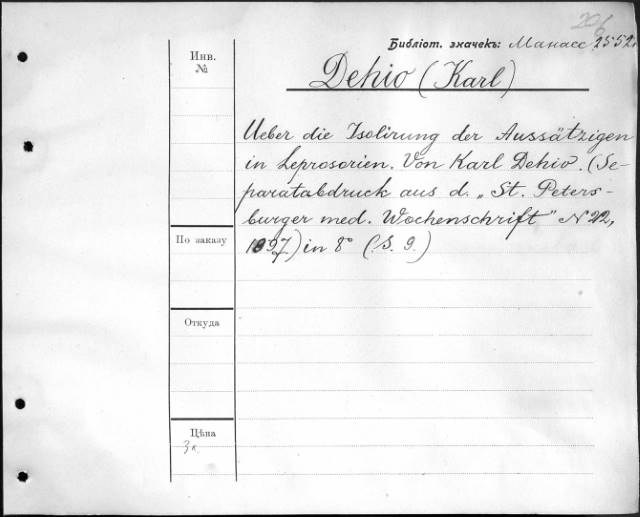 206
Библіот. значекъ: Манасс. 2552.
Инв.
№
Dehio (Karl)
Ueber die Isolirung der Aussätzigen
in Leprosorien. Von Karl Dehio. (Se-
paratabdruck aus d. „St. Peters-
burger med. Wochenschrift" N 22,
1897) in 8° (S. 9.)
По заказу
Откуда
Цѣна
3 к.